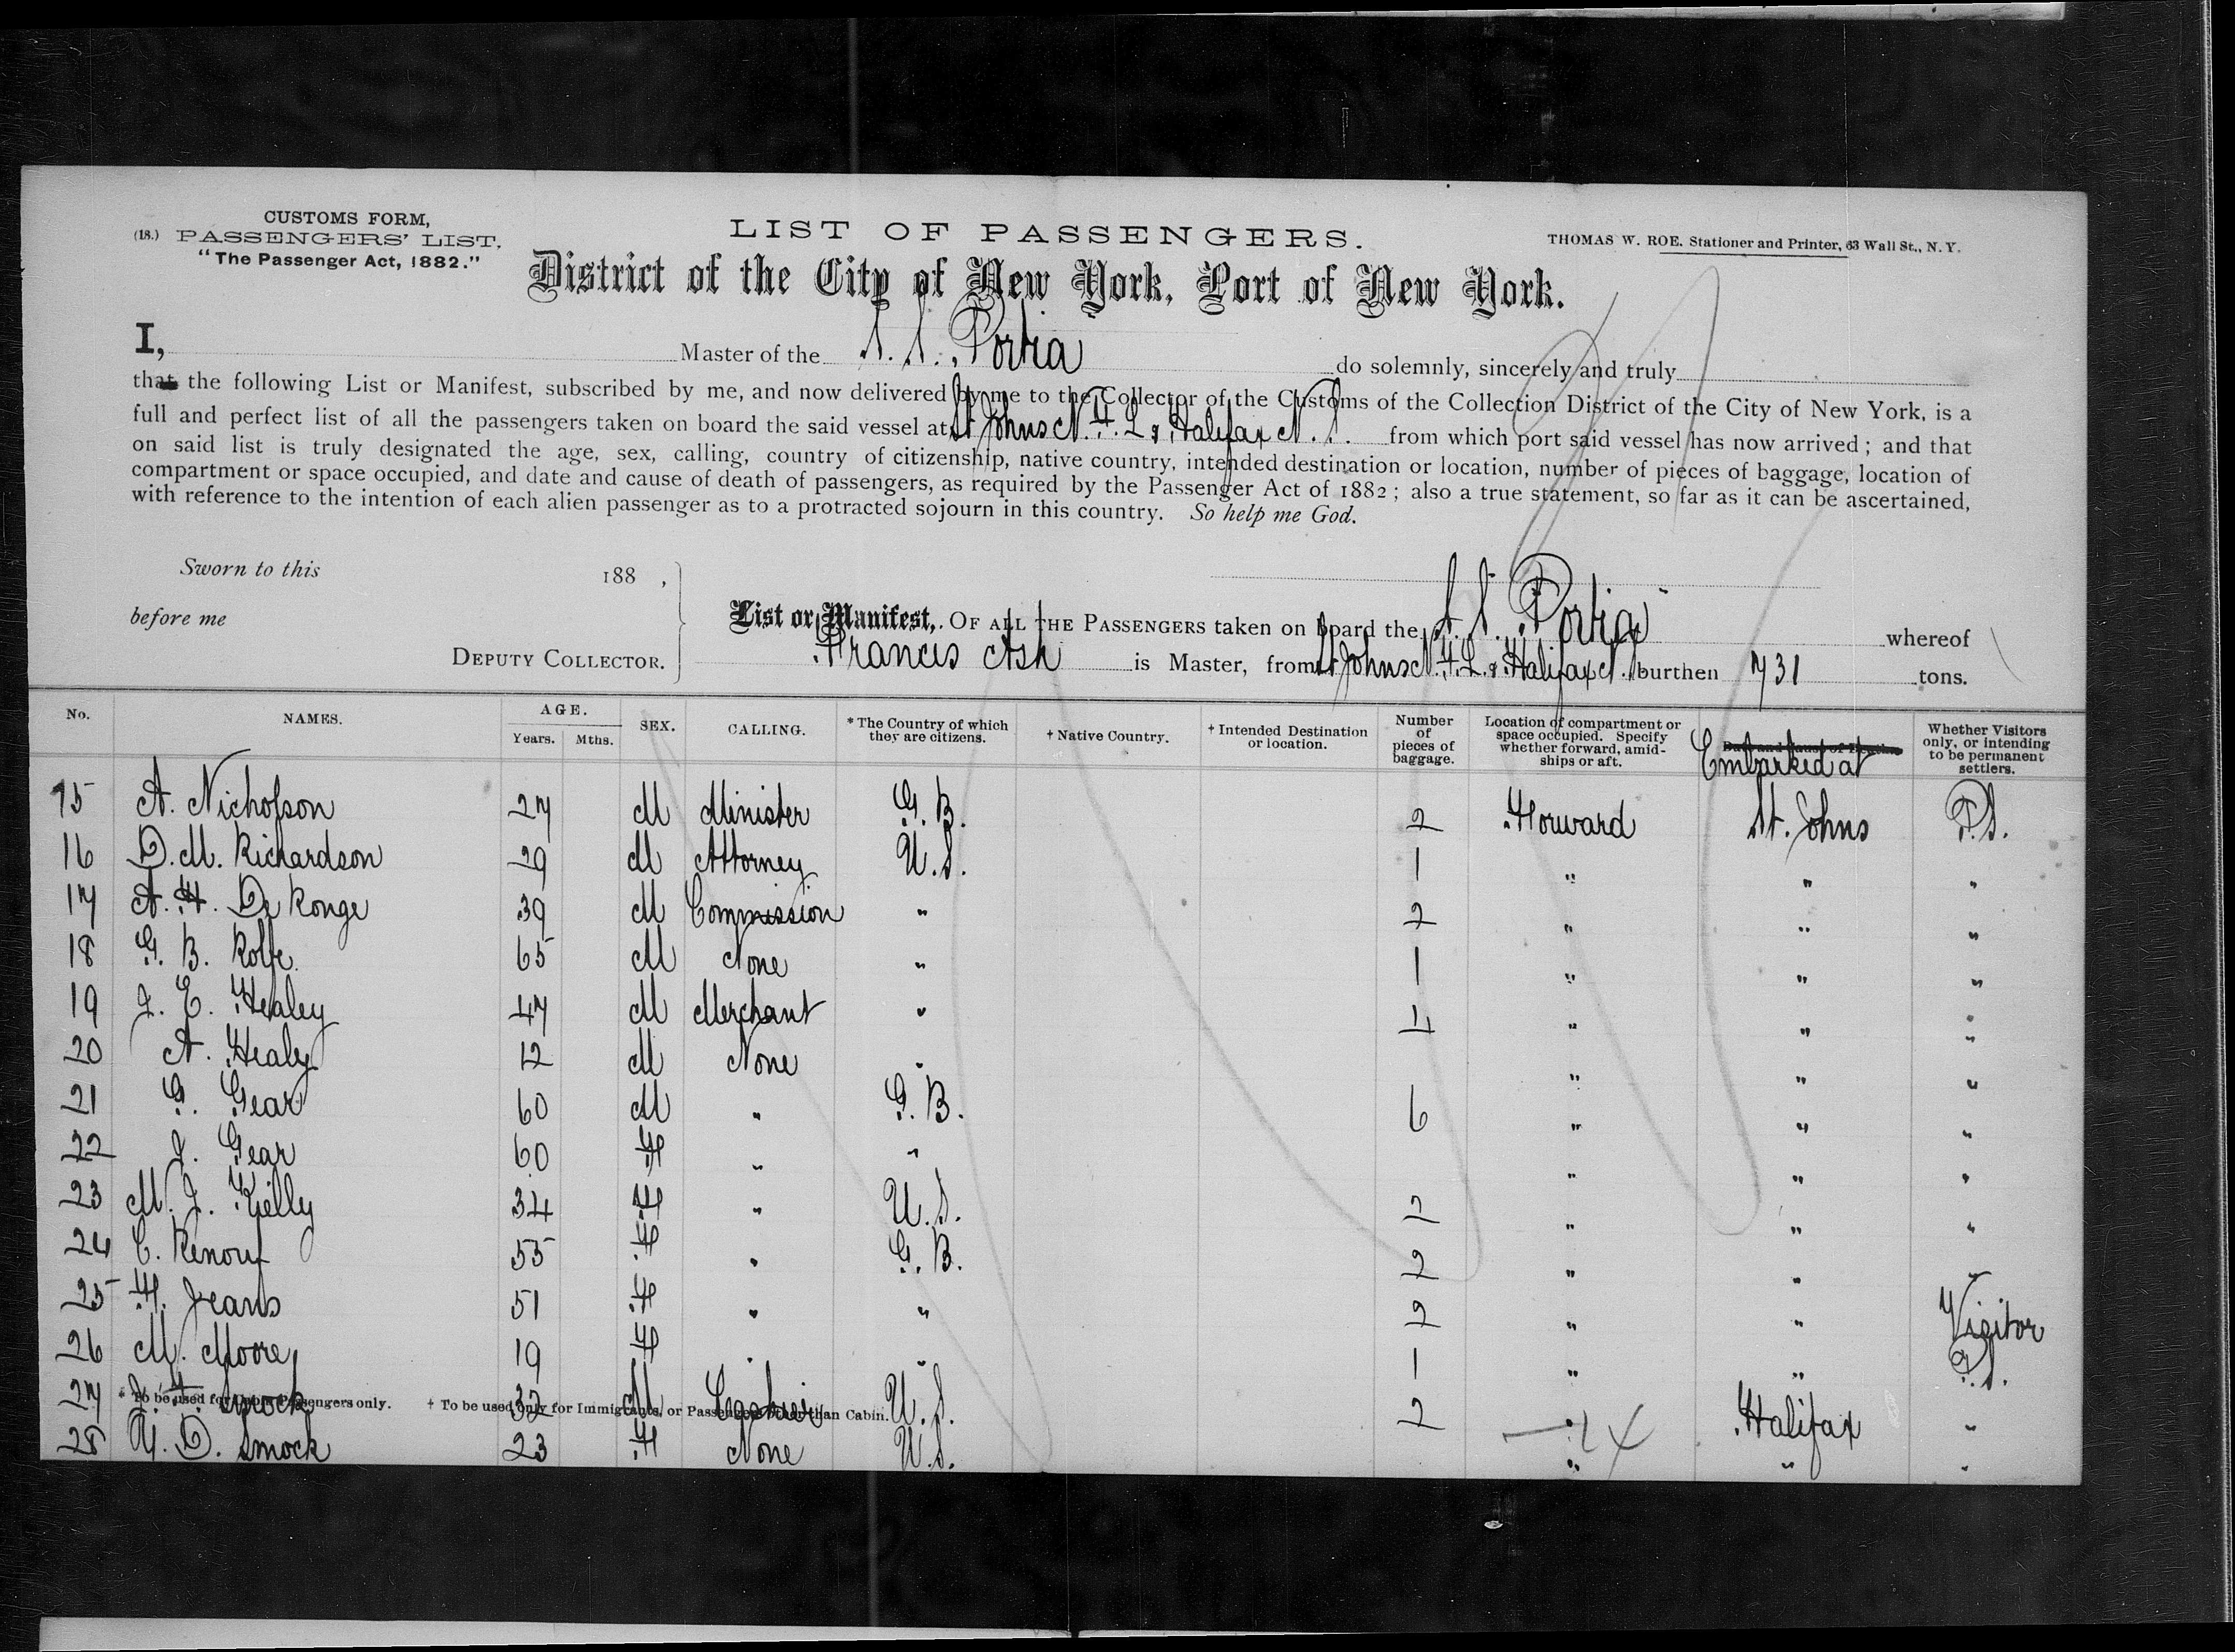 CUSTOMS FORM,
(18.) PASSENGERS' LIST.
"The Passenger Act, 1882."
LIST OF PASSENGERS.
THOMAS W. ROE. Stationer and Printer, 63 Wall St., N. Y.
District of the City of New York, Port of New York.
I, Master of the S. S. Portia do solemnly, sincerely and truly
that the following List or Manifest, subscribed by me, and now delivered by me to the Collector of the Customs of the Collection District of the City of New York, is a
full and perfect list of all the passengers taken on board the said vessel at St Johns N. F. L & Halifax N. S. from which port said vessel has now arrived; and that
on said list is truly designated the age, sex, calling, country of citizenship, native country, intended destination or location, number of pieces of baggage, location of
compartment or space occupied, and date and cause of death of passengers, as required by the Passenger Act of 1882; also a true statement, so far as it can be ascertained,
with reference to the intention of each alien passenger as to a protracted sojourn in this country. So help me God.
Sworn to this 188 ,
before me
DEPUTY COLLECTOR.
List or Manifest, OF ALL THE PASSENGERS taken on board the S. S. Portia whereof
Francis Ash is Master, from St Johns N. F. L. & Halifax N. S burthen 731 tons.
No. NAMES. AGE. Years. Mths. SEX. CALLING. * The Country of which they are citizens. † Native Country. † Intended Destination or location. Number of pieces of baggage. Location of compartment or space occupied. Specify whether forward, amidships or aft. Embarked at Whether Visitors only, or intending to be permanent settlers.
15 A. Nicholson 27 M Minister G. B. 2 Forward St. Johns P.S.
16 D. M. Richardson 29 M Attorney U. S. 1 " " "
17 A. H. De Ronge 39 M Commission " 2 " " "
18 G. B. Rolfe 65 M None " 1 " " "
19 J. E. Healey 47 M Merchant " 4 " " "
20 A. Healey 12 M None " " " "
21 G. Gear 60 M " G. B. 6 " " "
22 J. Gear 60 F " " " " "
23 M. J. Kielly 34 F " U. S. 2 " " "
24 C. Renouf 55 F " G. B. 2 " " "
25 F. Jeans 51 F " " 2 " " Visitor
26 M. Moore 19 F " " 1 " " P.S.
27 J. Smock 32 M Cashier U. S. 2 " Halifax "
* To be used for Passengers only. † To be used only for Immigrants, or Passengers other than Cabin.
28 Y. D. Smock 23 F None U. S. " " "